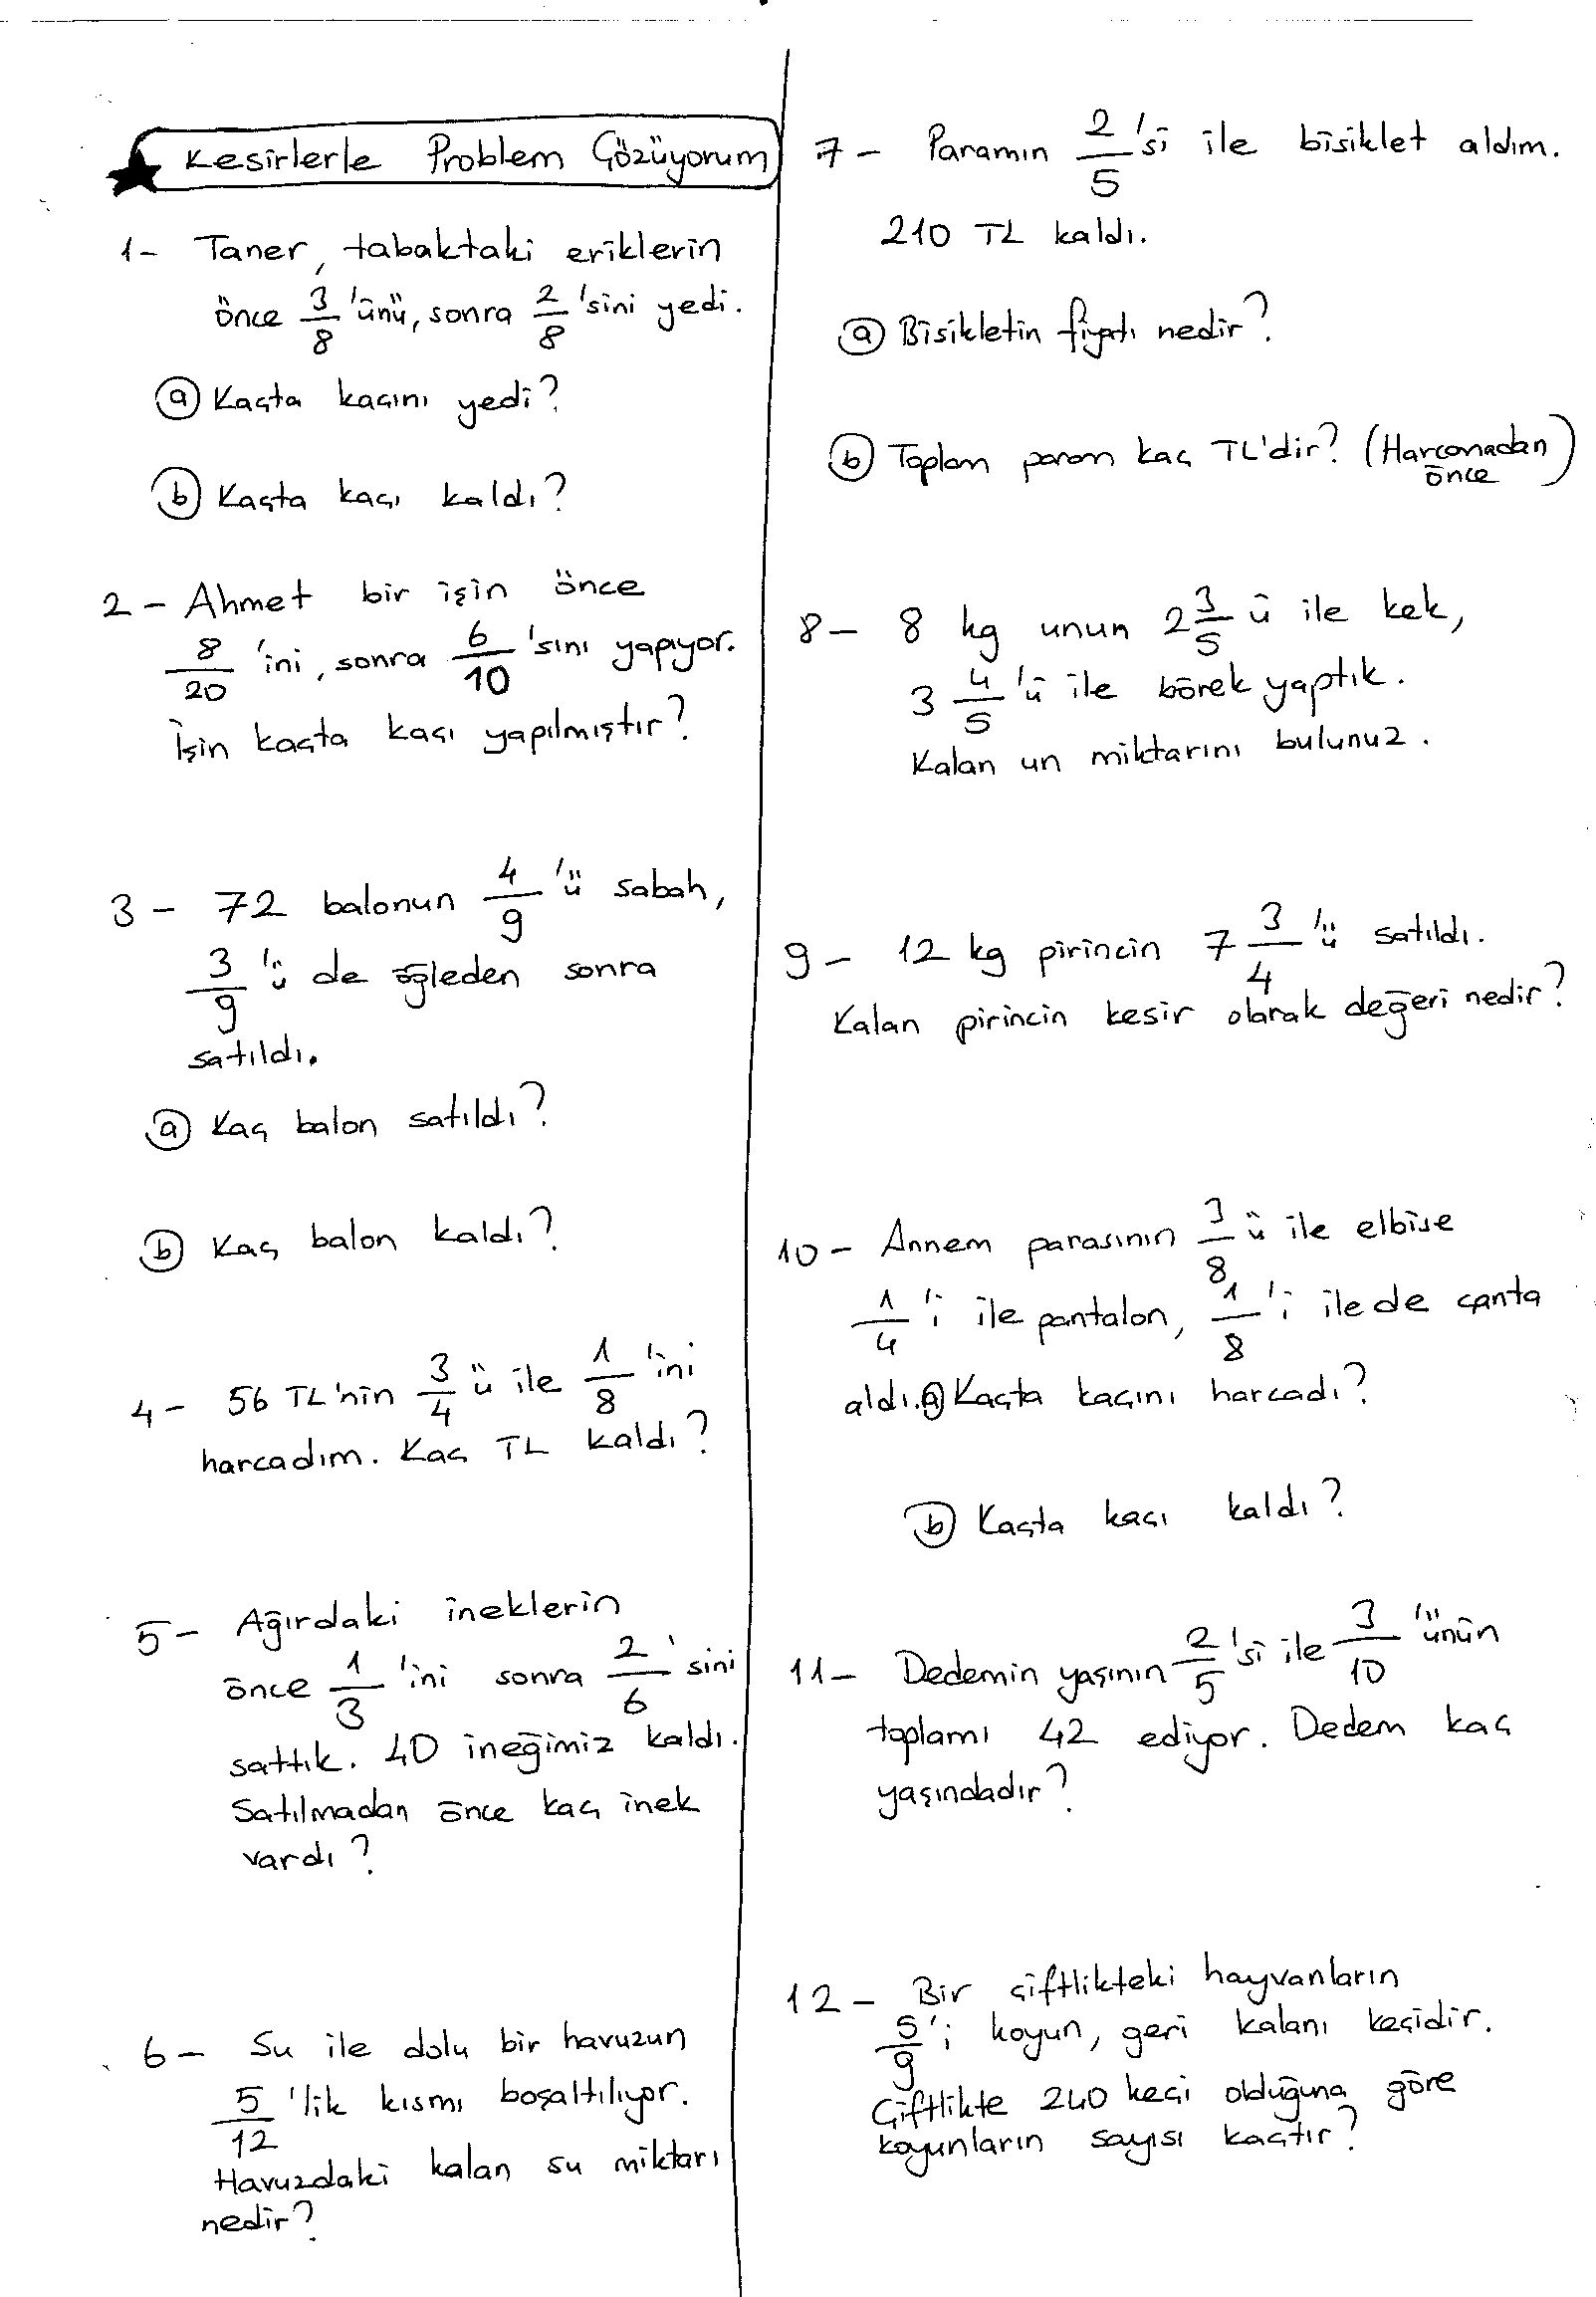 Kesirlerle Problem Çözüyorum
1- Taner, tabaktaki eriklerin
önce 3/8 'ünü, sonra 2/8 'sini yedi.
ⓐ Kaçta kaçını yedi?
ⓑ Kaçta kaçı kaldı?
2- Ahmet bir işin önce
8/20 'ini, sonra 6/10 'sını yapıyor.
İşin kaçta kaçı yapılmıştır?
3- 72 balonun 4/9 'ü sabah,
3/9 'ü de öğleden sonra
satıldı.
ⓐ Kaç balon satıldı?
ⓑ Kaç balon kaldı?
4- 56 TL'nin 3/4 ü ile 1/8 'ini
harcadım. Kaç TL kaldı?
5- Ağırdaki ineklerin
önce 1/3 'ini sonra 2/6 'sini
sattık. 40 ineğimiz kaldı.
Satılmadan önce kaç inek
vardı?
6- Su ile dolu bir havuzun
5/12 'lik kısmı boşaltılıyor.
Havuzdaki kalan su miktarı
nedir?
7- Paramın 2/5 'si ile bisiklet aldım.
210 TL kaldı.
ⓐ Bisikletin fiyatı nedir?
ⓑ Toplam param kaç TL'dir? (Harcamadan
önce)
8- 8 kg unun 2 3/5 ü ile kek,
3 4/5 'ü ile börek yaptık.
Kalan un miktarını bulunuz.
9- 12 kg pirincin 7 3/4 'ü satıldı.
Kalan pirincin kesir olarak değeri nedir?
10- Annem parasının 3/8 ü ile elbise
1/4 'i ile pantalon, 1/8 'i ile de çanta
aldı. ⓐ Kaçta kaçını harcadı?
ⓑ Kaçta kaçı kaldı?
11- Dedemin yaşının 2/5 'si ile 3/10 'ünün
toplamı 42 ediyor. Dedem kaç
yaşındadır?
12- Bir çiftlikteki hayvanların
5/9 'i koyun, geri kalanı keçidir.
Çiftlikte 240 keçi olduğuna göre
koyunların sayısı kaçtır?